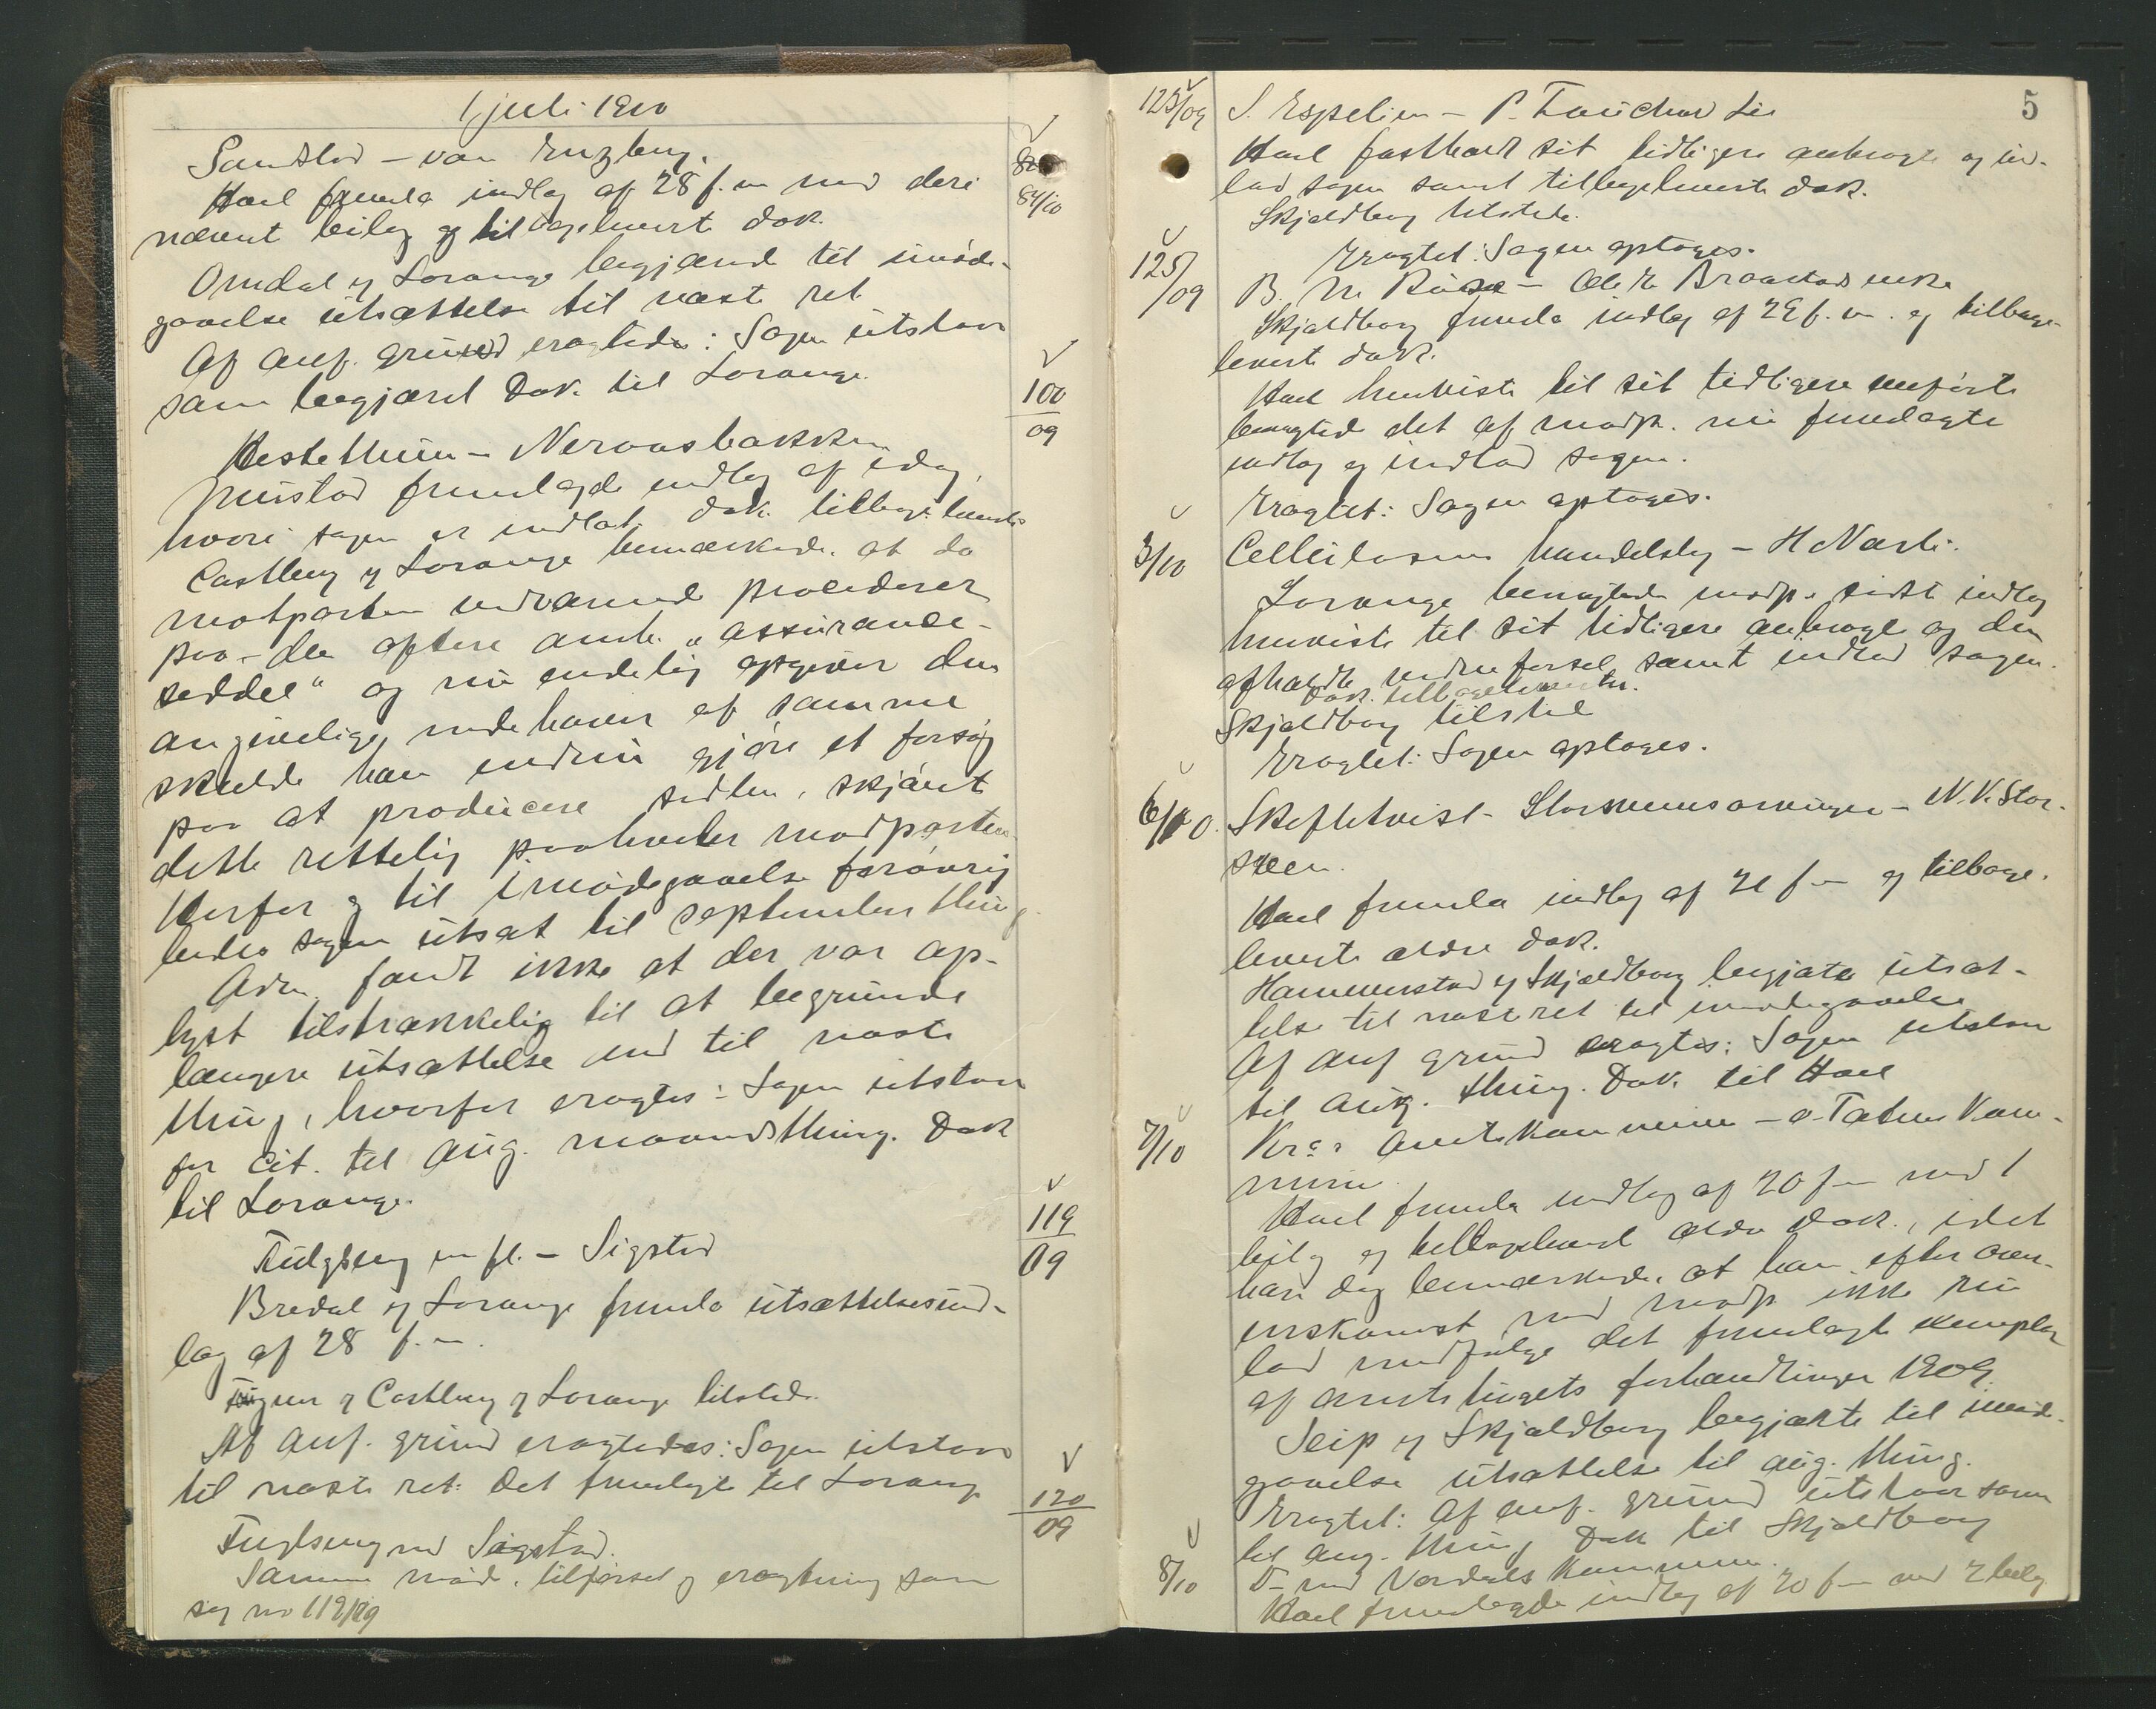 1 juli 1910
Sandstad – van Enzberg.
84/10
Hael fremla indlæg af 28 f. m med deri
nævnt beilag og tilbagelevert dok.
Omdal og Lorange begjærede til imøde-
gaaelse utsættelse til næste ret
Af anf. grund eragtedes: Sagen utstaar
som begjæret Dok. til Lorange.
100/09
Hestethun – Nervaasbakken
Mustad fremlagde indlæg af idag,
hvori sagen er indlat. dok. tilbagelevertes
Castberg og Lorange bemærkede, at da
motparten vedvarende procederer
paa den oftere omh. "assurance-
seddel" og nu endelig opgiver den
angivelige indehaver af samme
skulde han endnu gjøre et forsøg
paa at producere sedlen, skjønt
dette rettelig paahviler modparten
Herfor og til imødegaaelse forøvrig
bedes sagen utsat til september thing.
Adm. fandt ikke at der var op-
lyst tilstrækkelig til at begrunde
længere utsættelse end til næste
thing, hvorfor eragtes: Sagen utstaar
for cit. til aug. maanedsthing. Dok
til Lorange.
119/09
Fuglseng m fl. – Sigstad
Bredal og Lorange fremla utsættelsesind-
læg af 28 f. m.
og Castberg og Lorange tilstede.
Af anf. grund eragtedes: Sagen utstaar
til næste ret. Det fremlagte til Lorange
120/09
Fuglseng md Sigstad.
Samme møde, tilførsel og eragtning som
sag no 119/09
5
125/09 S. Espelien – P. Fauchald Lie
Hael fastholdt sit tidligere anbragte og ind-
lod sagen samt tilbageleverte dok.
Skjoldborg tilstede.
Eragtet: Sagen optages.
125/09 B. M. – Ole E Braastads enke
Skjoldborg fremla indlæg af 29 f. m. og tilbage-
levert dok.
Hael henviste til sit tidligere anførte
benegted det af modp. nu fremlagte
indlæg og indlod sagen.
Eragtet: Sagen optages.
3/10 Cellulosens handelsby – H Næsli.
Lorange benegtede modp. sidste indlæg
henviste til sit tidligere anbragte og den
afholdte vidneførsel samt indlod sagen.
Dok. tilbagelevertes.
Skjoldborg tilsted
Eragtet: Sagen optages.
6/10. Skiftetvist – Storsveens arvinger – N. N. Stor-
sveen.
Hael fremla indlæg af 21 f m og tilbage-
leverte ældre dok.
Hammerstad og Skjoldborg begjærte utsæt-
telse til næste ret til imødegaaelse
Af anf grund eragtes: Sagen utstaar
til aug. thing. Dok til Hael
7/10 Kr.s Amtskommune – ø. Totens Kom-
mune
Hael fremla indlæg af 20 f m med 1
beilag og tilbagelevert ældre dok., idet
han dog bemærkede, at han efter over-
enskomst med modp ikke nu
lod medfølge det fremlagte exemplar
af amtstingets forhandlinger 1909.
Seip og Skjoldborg begjærte til imøde-
gaaelse utsættelse til aug. thing.
Eragtet: Af anf. grund utstaar sagen
til aug. thing, Dok til Skjoldborg
8/10 D– md Vardals kommune.
Hael fremlagde indlæg af 20 f m med 2 beilag